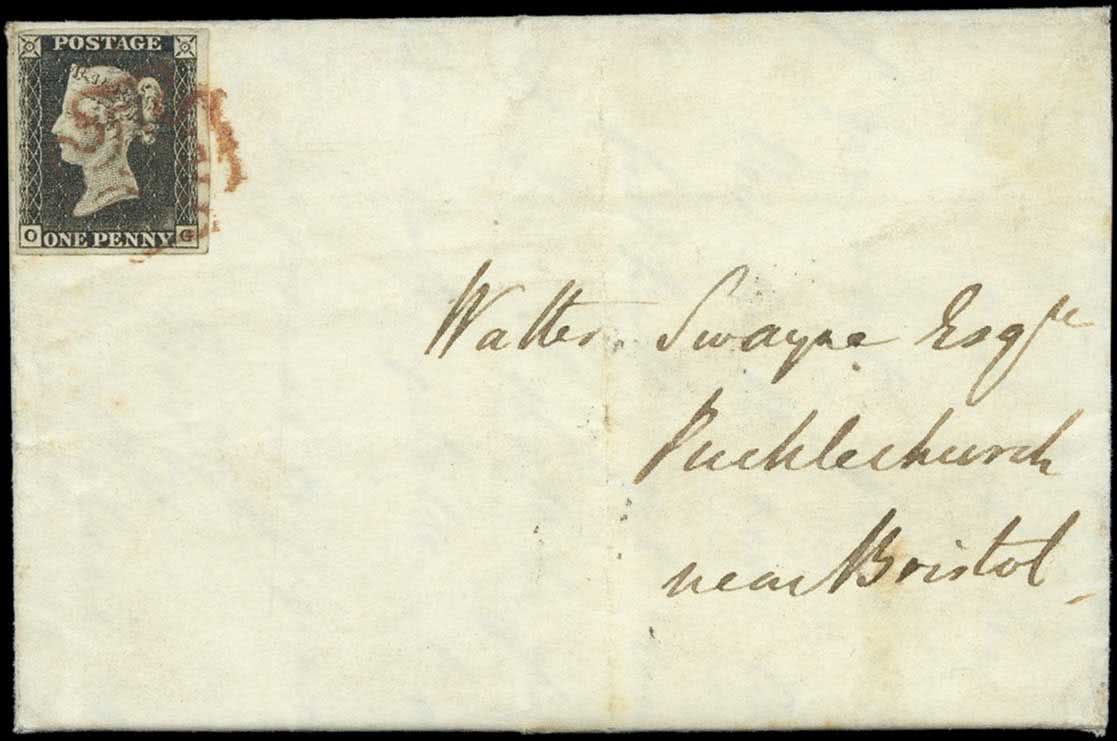 POSTAGE
O ONE PENNY G
Walter Swayne Esqre
Pucklechurch
near Bristol